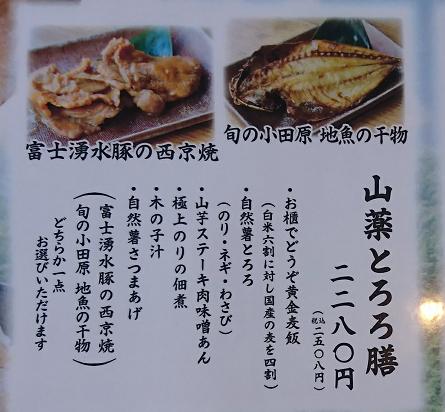 富士湧水豚の西京焼
旬の小田原 地魚の干物
山薬とろろ膳
二二八〇円
(税込二五〇八円)
・お櫃でどうぞ黄金麦飯
(白米六割に対し国産の麦を四割)
・自然薯とろろ
(のり・ネギ・わさび)
・山芋ステーキ肉味噌あん
・極上のりの佃煮
・木の子汁
・自然薯さつまあげ
(富士湧水豚の西京焼
旬の小田原 地魚の干物)
どちらか一点
お選びいただけます